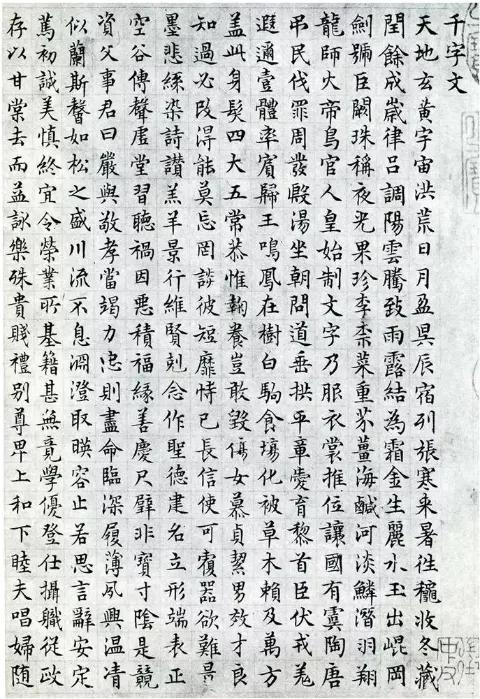 千字文
天地玄黃宇宙洪荒日月盈昃辰宿列張寒来暑往穐收冬藏
閏餘成歲律呂調陽雲騰致雨露結為霜金生麗水玉出崐岡
劍號巨闕珠稱夜光果珍李柰菜重芥薑海鹹河淡鱗潛羽翔
龍師火帝鳥官人皇始制文字乃服衣裳推位讓國有虞陶唐
弔民伐罪周發殷湯坐朝問道垂拱平章愛育黎首臣伏戎羌
遐邇壹體率賓歸王鳴鳳在樹白駒食場化被草木賴及萬方
盖此身髮四大五常恭惟鞠養豈敢毀傷女慕貞潔男效才良
知過必改得能莫忘罔談彼短靡恃己長信使可覆器欲難量
墨悲絲染詩讚羔羊景行維賢剋念作聖德建名立形端表正
空谷傳聲虛堂習聽禍因惡積福緣善慶尺璧非寶寸陰是競
資父事君曰嚴與敬孝當竭力忠則盡命臨深履薄夙興温凊
似蘭斯馨如松之盛川流不息淵澄取暎容止若思言辭安定
篤初誠美慎終宜令榮業所基籍甚無竟學優登仕攝職從政
存以甘棠去而益詠樂殊貴賤禮别尊卑上和下睦夫唱婦隨